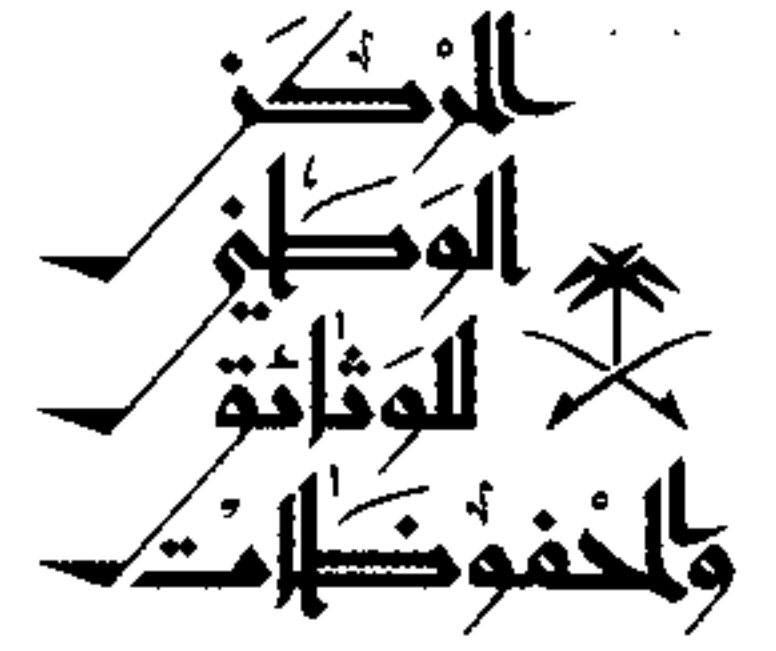 المَرْكَز
الوَطَني
للوَثائق
وَالمحْفوظَات